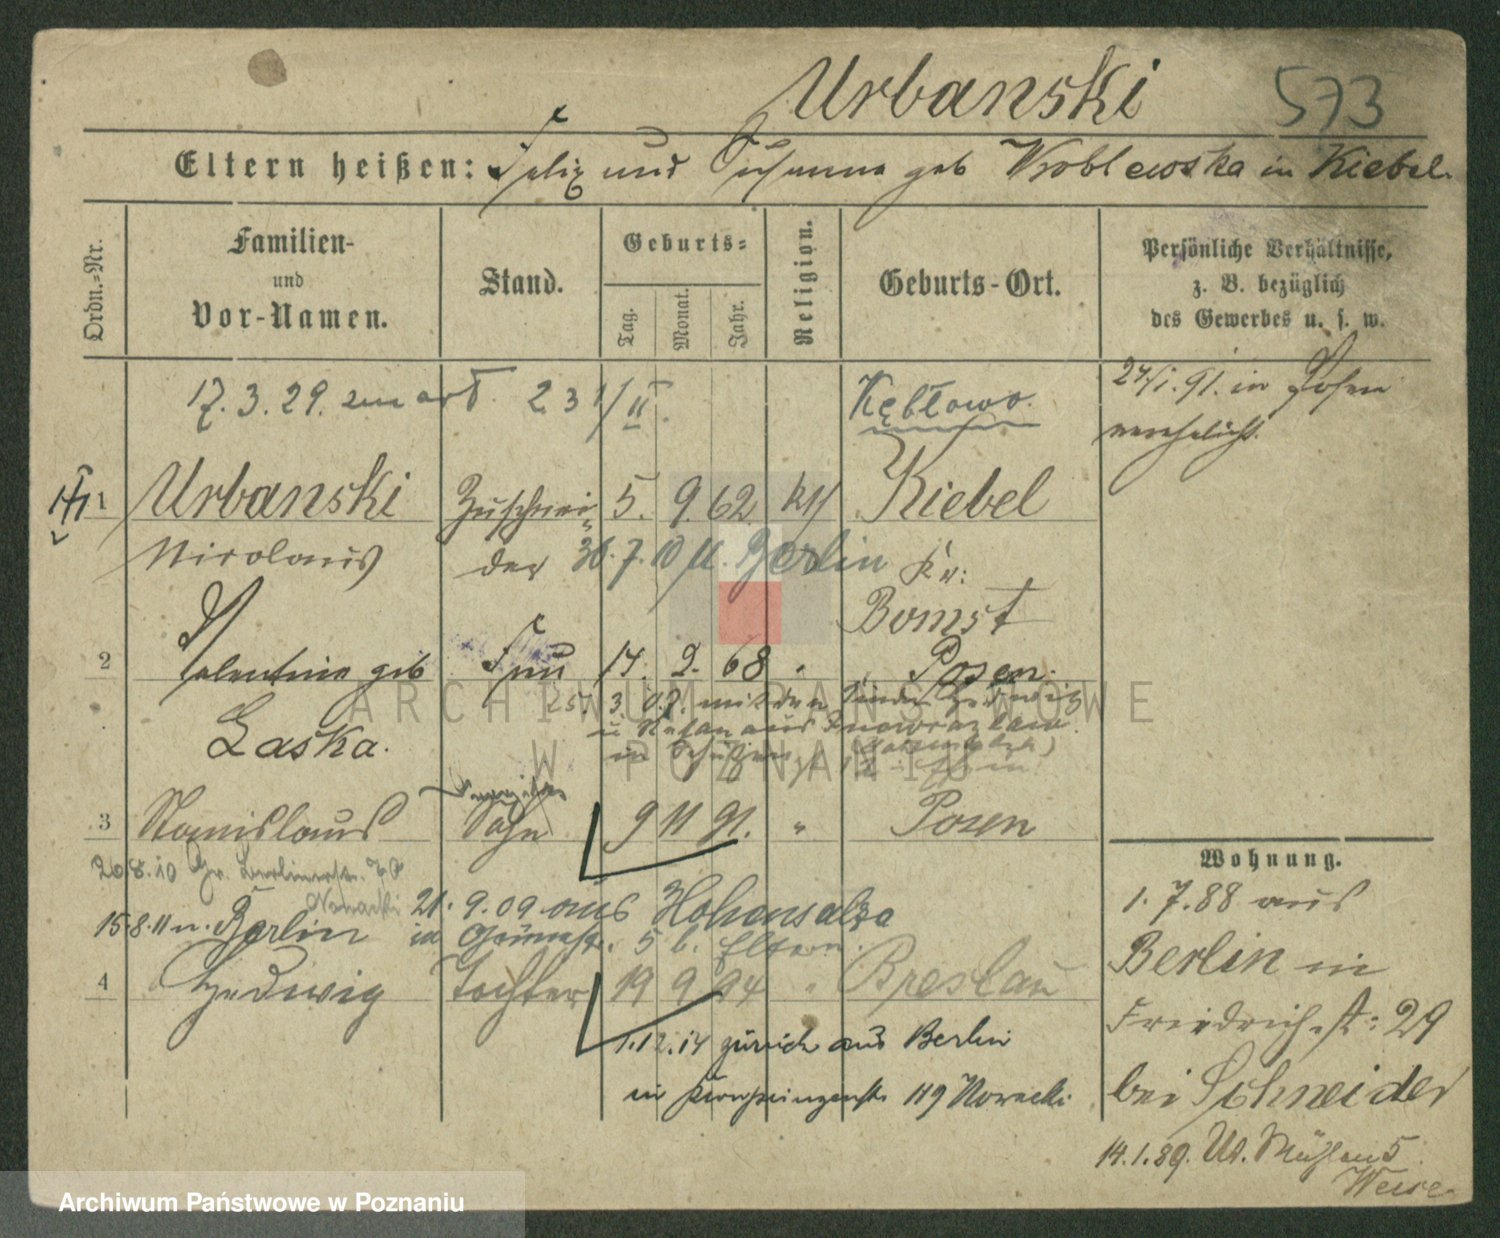 Urbanski 573
Eltern heißen: Felix und Susanna geb Wroblewska in Kiebel.
Ordn.-Nr.
Familien- und Vor-Namen.
Stand.
Geburts-
Tag.
Monat.
Jahr.
Religion.
Geburts-Ort.
Persönliche Verhältnisse, z. B. bezüglich des Gewerbes u. s. w.
17. 3. 29. 231/II Kębłowo.
24/1. 91. in Posen
verehelicht.
1 Urbanski Zuschnei- 5. 9. 62. kth Kiebel
Nicolaus der 30. 7. 10 n. Berlin Kr:
Bomst
2 Valentine geb Frau 14. 2. 68 " Posen.
Laska.
25. 3. 07. mit den Kinder Hedwig
u Stefan aus Inowrazlaw
in
3 Stanislaus Sohn 9 11 91. " Posen
20.8.10 Gr. Berlinerstr.
Nowacki
21. 9. 09 aus Hohensalza
15.8.11 n. Berlin in 5 b. Eltern.
4 Hedwig Tochter 19 9 94 " Breslau
1.12.14 zurück aus Berlin
in Kronprinzenstr. 119 Nowacki
Wohnung.
1. 7. 88 aus
Berlin in
Friedrichstr: 29
bei Schneider
14. 1. 89. Mühlen 5
ARCHIWUM PAŃSTWOWE
W POZNANIU
Archiwum Państwowe w Poznaniu